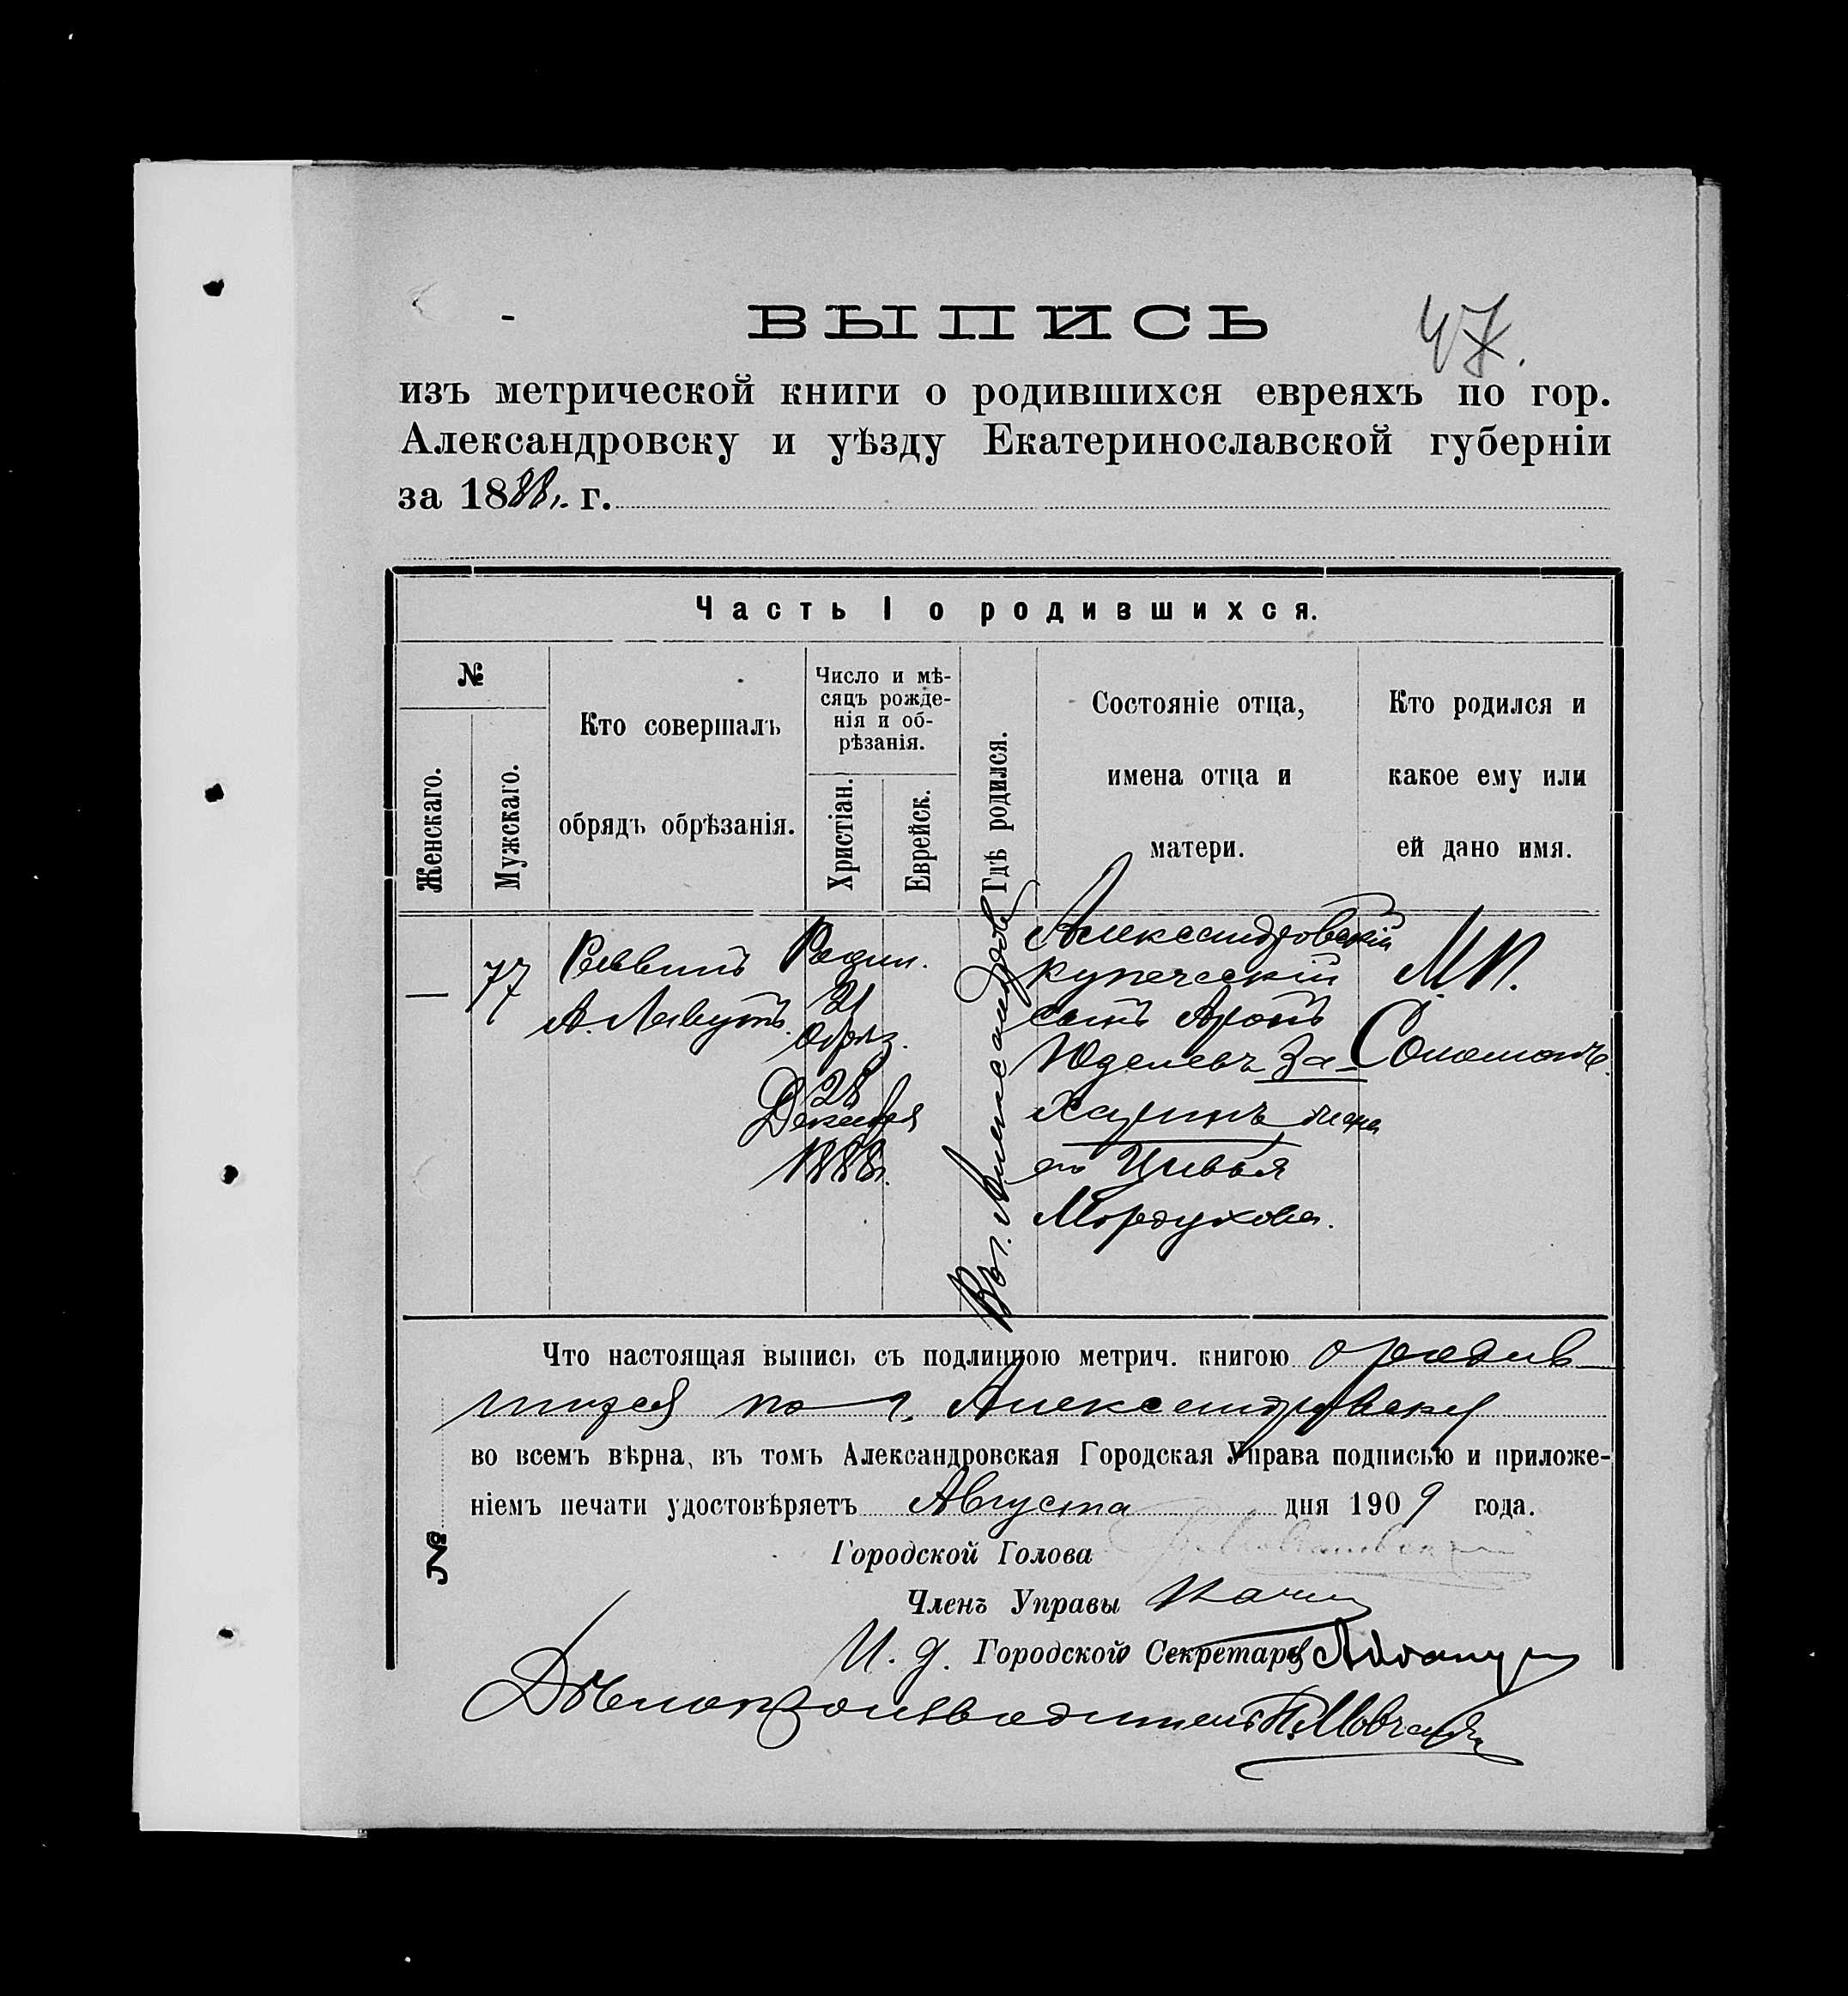 ВЫПИСЬ
47.
изъ метрической книги о родившихся евреяхъ по гор.
Александровску и уѣзду Екатеринославской губерніи
за 1888. г.
Часть I о родившихся.
№
Женскаго.
Мужскаго.
Кто совершалъ
обрядъ обрѣзанія.
Число и мѣ-
сяцъ рожде-
нія и об-
рѣзанія.
Христіан.
Еврейск.
Гдѣ родился.
Состояніе отца,
имена отца и
матери.
Кто родился и
какое ему или
ей дано имя.
—
77
Раввинъ
А. Лавутъ.
Родил.
21
Обрѣз.
28
Декабря
1888г.
Въ г. Александров
Александровскій
купеческій
сынъ Аронъ
Юделевъ За-
харинъ жена
его Цивья
Мордухова.
М.П.
Соломонъ.
Что настоящая выпись съ подлинною метрич. книгою о родив-
шихся по г. Александровску
во всемъ вѣрна, въ томъ Александровская Городская Управа подписью и приложе-
ніемъ печати удостовѣряетъ Августа дня 1909 года.
№
Городской Голова
Членъ Управы
И. д. Городской Секретаря
Дѣлопроизводитель